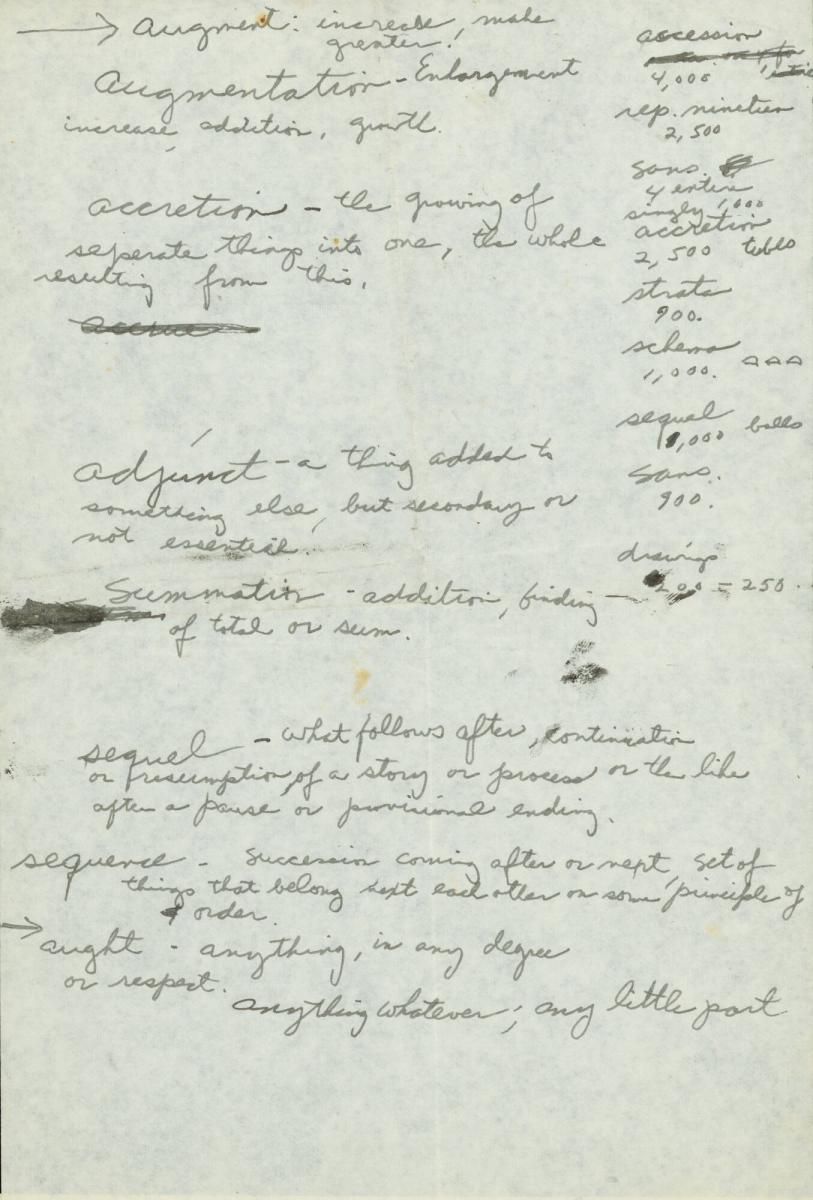 → Augment: increase, make
greater.
Augmentation - Enlargement
increase, addition, growth.
accretion - the growing of
seperate things into one, the whole
resulting from this.
accrue
adjunct - a thing added to
something else, but secondary or
not essential.
Summation - addition, finding
of total or sum.
sequel - what follows after, continuation
or resumption of a story or process or the like
after a pause or provisional ending.
sequence - Succession coming after or next, set of
things that belong next each other on some principle of
order.
→ aught - anything, in any degree
or respect.
anything whatever; any little part
accession
4,000
rep. nineteen
2,500
Sans.
4 entire
singly 1,000
accretion
2,500 tubes
strata
900.
schema
1,000.
sequel
1,000 balls
Sans.
900.
drawings
200 = 250.